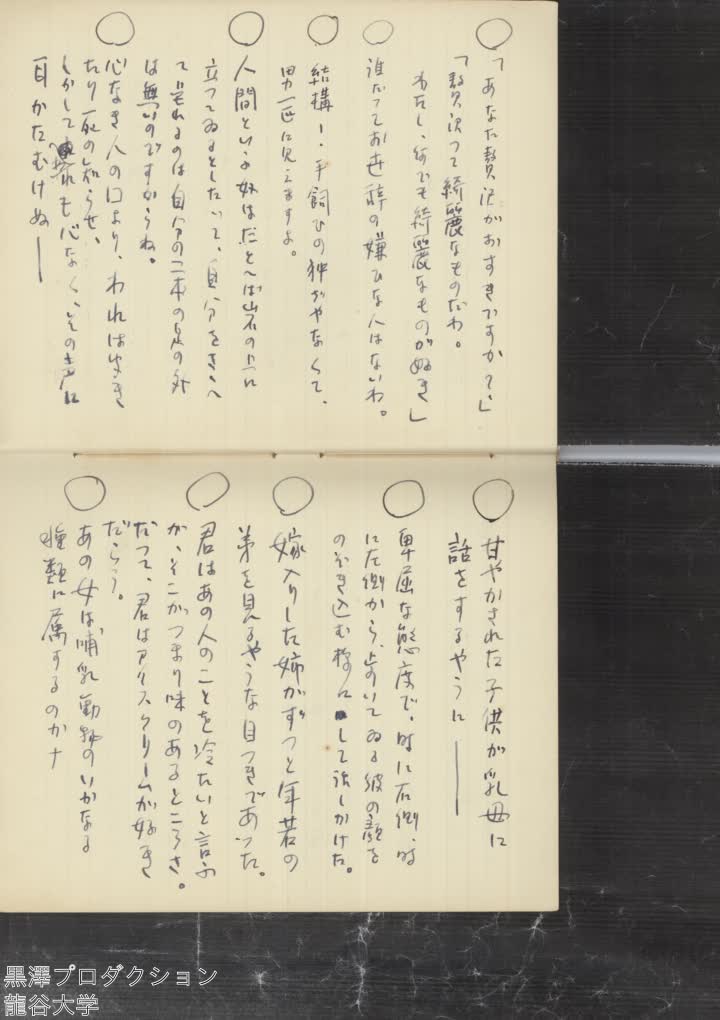 ○
「あなた贅沢がおすきですか？」
「贅沢つて綺麗なものだわ。
わたし、何でも綺麗なものがぬき」
○
誰だつてお世辞の嫌ひな人はないわ。
○
結構！手飼ひの狆がやなくて、
男一匹に見えますよ。
○
人間といふ奴はたとへば岩の上に
立つてゐるとしたいて、自分をさゝへ
て呉れるのは自分の二本の足の外
は無いのですからね。
○
心なき人の口より、われはきき
たり死の知らせ、
しかして我も心なく、その声に
耳かたむけぬ――
○
甘やかされた子供が乳母に
話をするやうに――
○
卑屈な態度で、時に右側、時
に左側から、歩いてゐる彼の顔を
のぞき込む様にして話しかけた。
○
嫁入りした姉がずつと年若の
弟を見るやうな目つきであつた。
○
君はあの人のことを冷たいと言ふ
が、そこがつまり味のあるところさ。
だつて、君はアイスクリームが好き
だらう。
○
あの女は哺乳動物のいかなる
種類に属するのか
黒澤プロダクション
龍谷大学